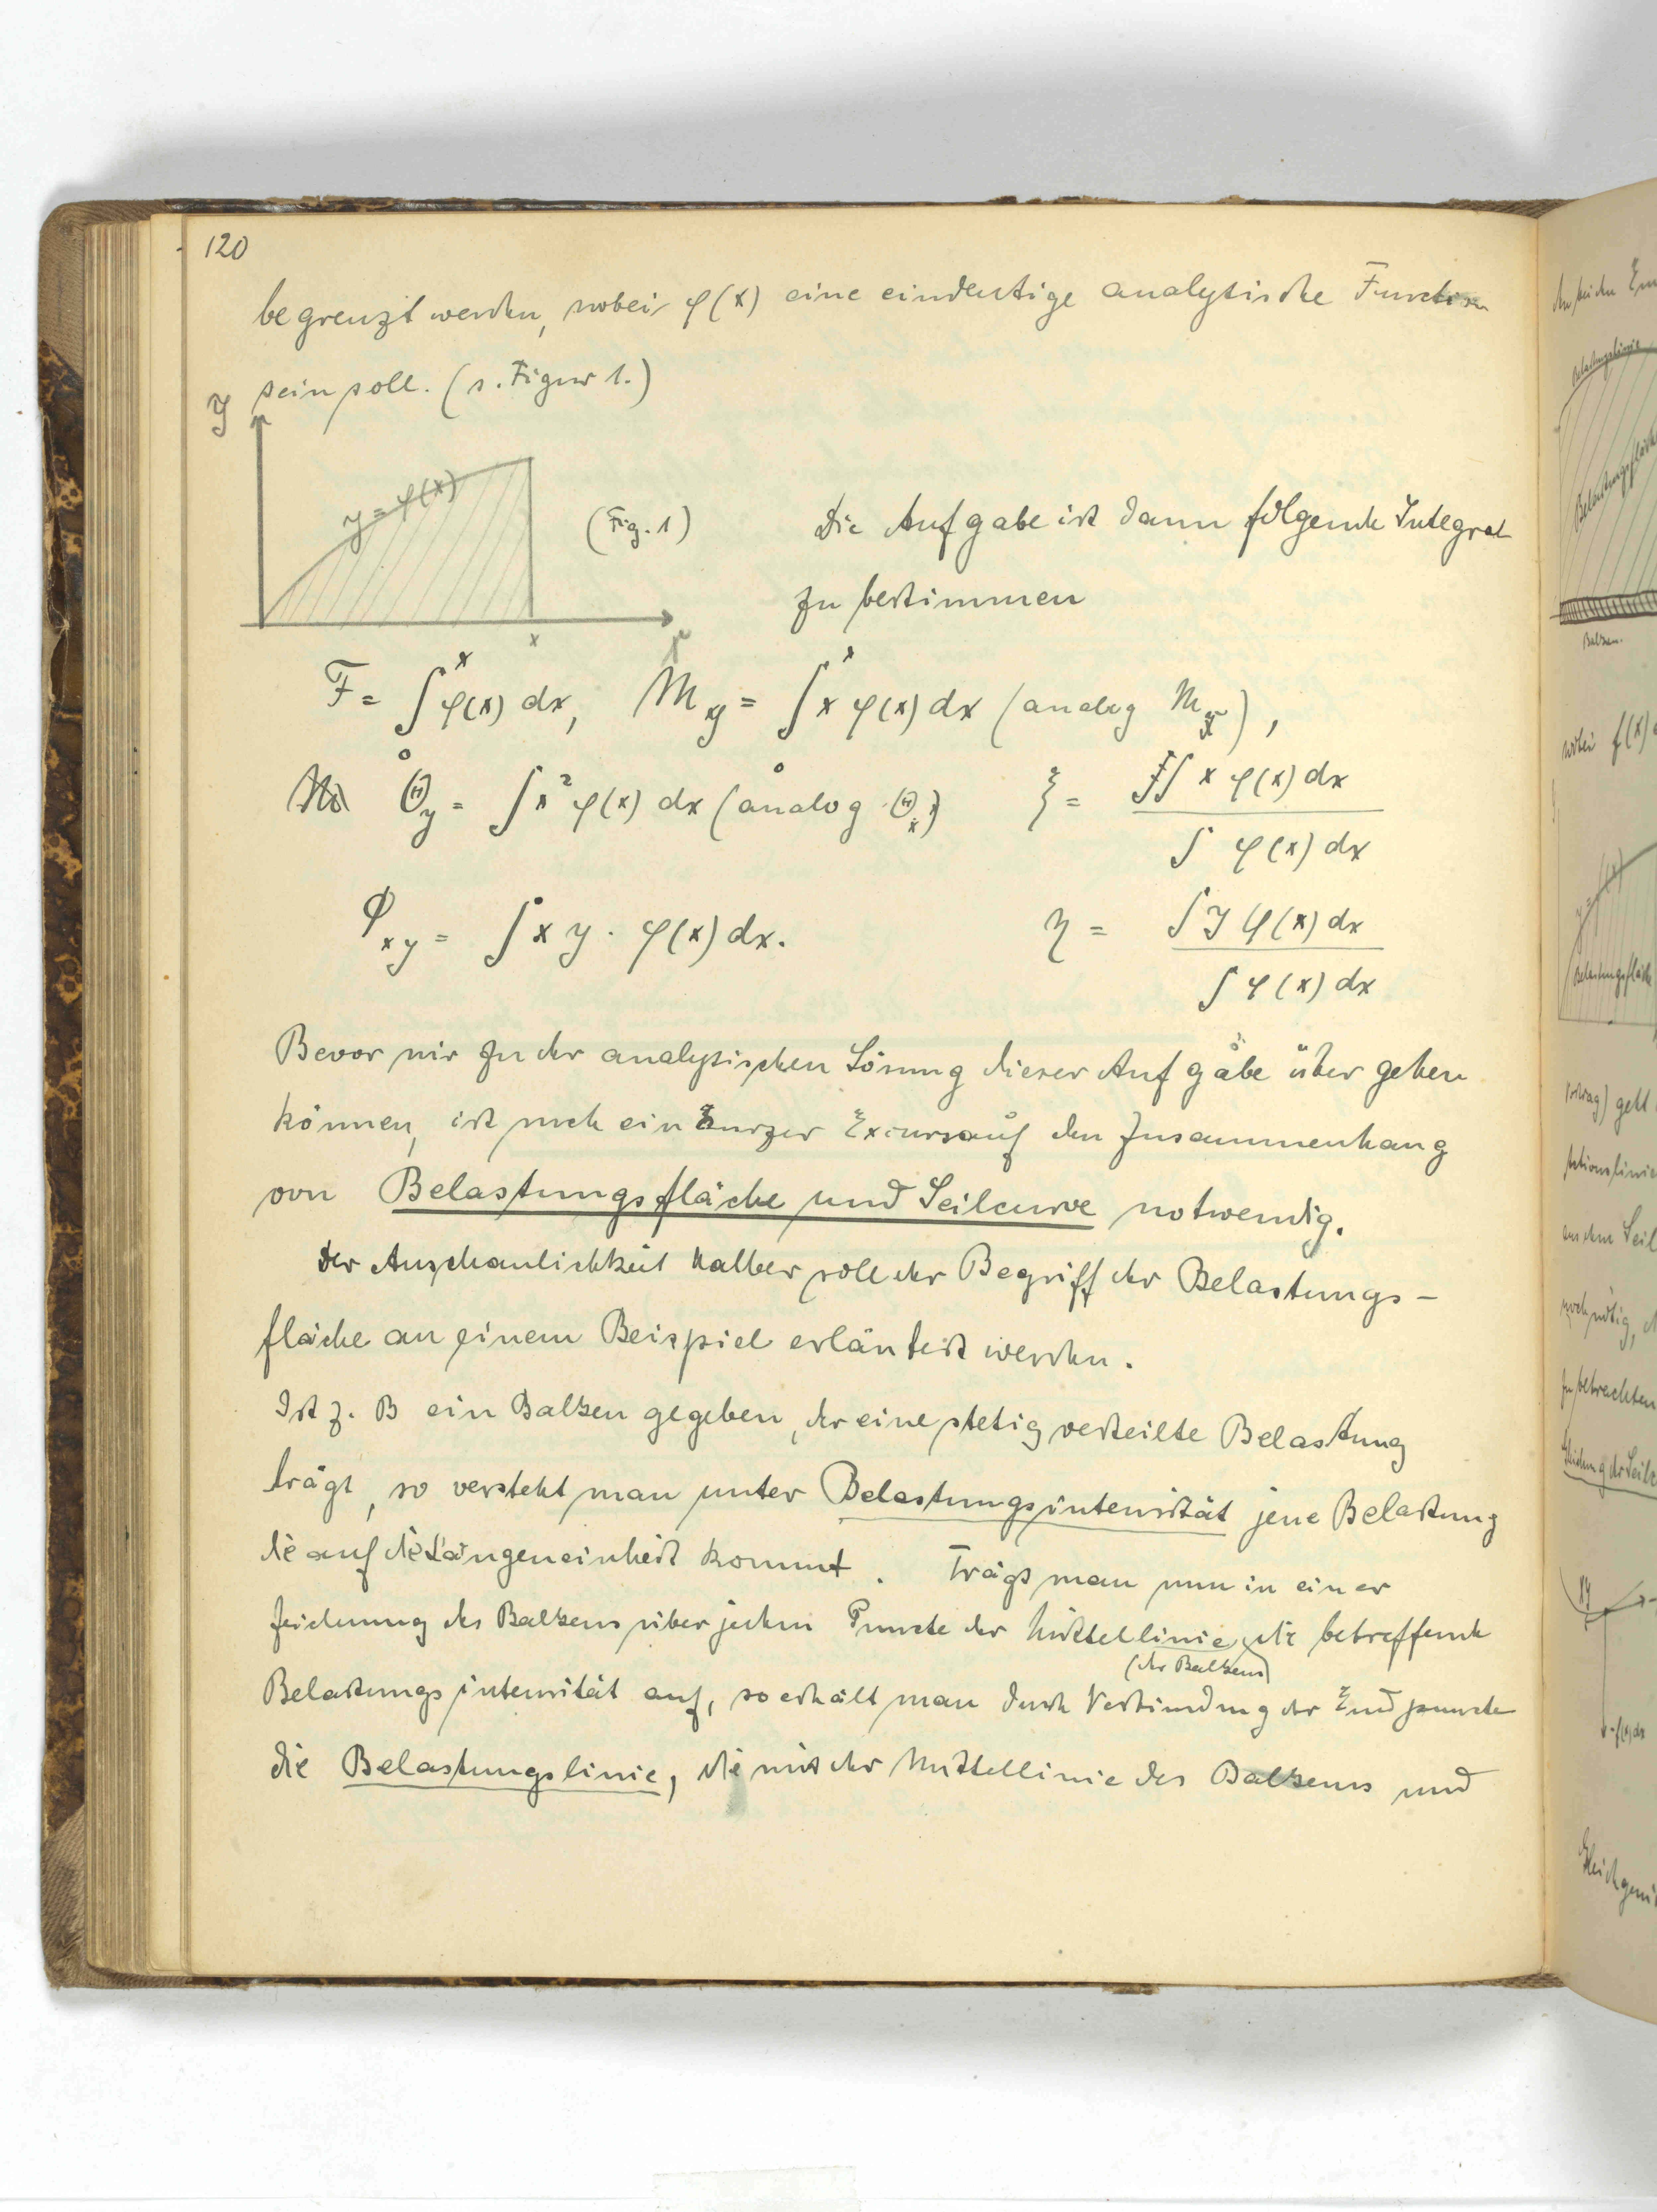 120
begrenzt werden, wobei φ(x) eine eindeutige analytische Function
sein soll. (s. Figur 1.)
y
y = φ(x)
(Fig. 1)
x
Die Aufgabe ist dann folgende Integral
zu bestimmen
F = ∫₀ˣ φ(x) dx, M_y = ∫₀ˣ x φ(x) dx (analog M_x),
Θ_y = ∫ x² φ(x) dx (analog Θ_x) ξ = ∫ x φ(x) dx / ∫ φ(x) dx
Φ_xy = ∫ x y · φ(x) dx. η = ∫ y φ(x) dx / ∫ φ(x) dx
Bevor wir zu der analytischen Lösung dieser Aufgabe übergehen
können, ist noch ein kurzer Excurs auf den Zusammenhang
von Belastungsfläche und Seilcurve notwendig.
Der Anschaulichkeit halber soll der Begriff der Belastungs-
fläche an einem Beispiel erläutert werden.
Ist z. B ein Balken gegeben, der eine stetig verteilte Belastung
trägt, so versteht man unter Belastungsintensität jene Belastung
die auf die Längeneinheit kommt. Trägt man nun in einer
Zeichnung des Balkens über jedem Puncte der Mittellinie die betreffende
(des Balkens)
Belastungsintensität auf, so erhält man durch Verbindung der Endpuncte
die Belastungslinie, die mit der Mittellinie des Balkens und
Belastungslinie
Belastungsfläche
Balken.
wobei f(x)
y = f(x)
Belastungsfläche
geht
aus dem Seil
noch nötig, d
zu betrachten